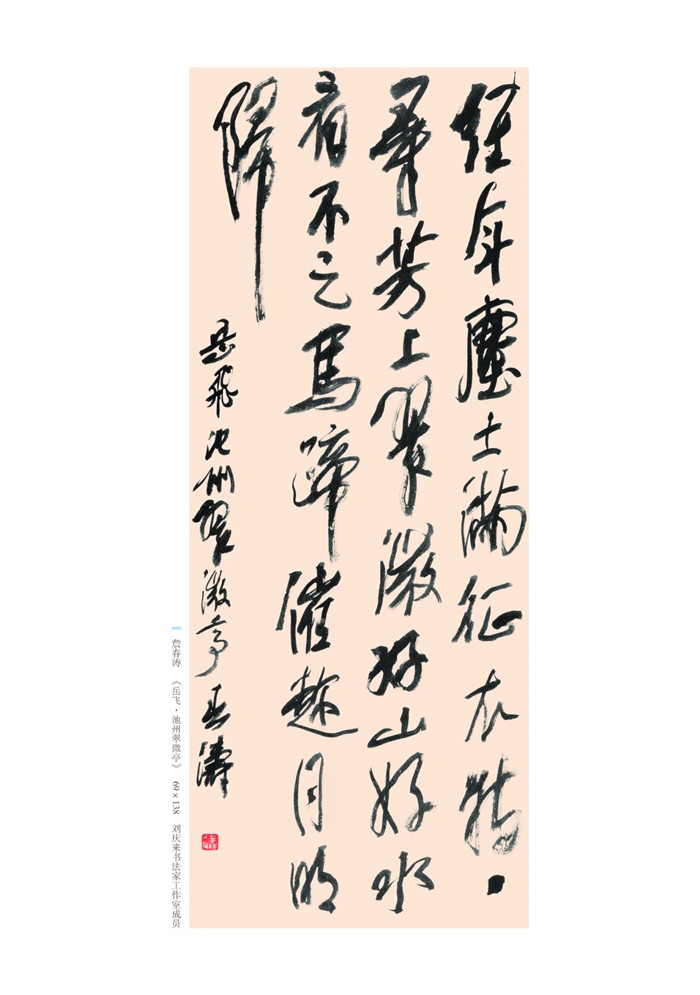 經年塵土滿征衣特々
尋芳上翠微好山好水
看不足馬蹄催趁月明
歸
岳飛池州翠微亭 春濤
詹春涛 《岳飞·池州翠微亭》 69×138 刘庆来书法家工作室成员